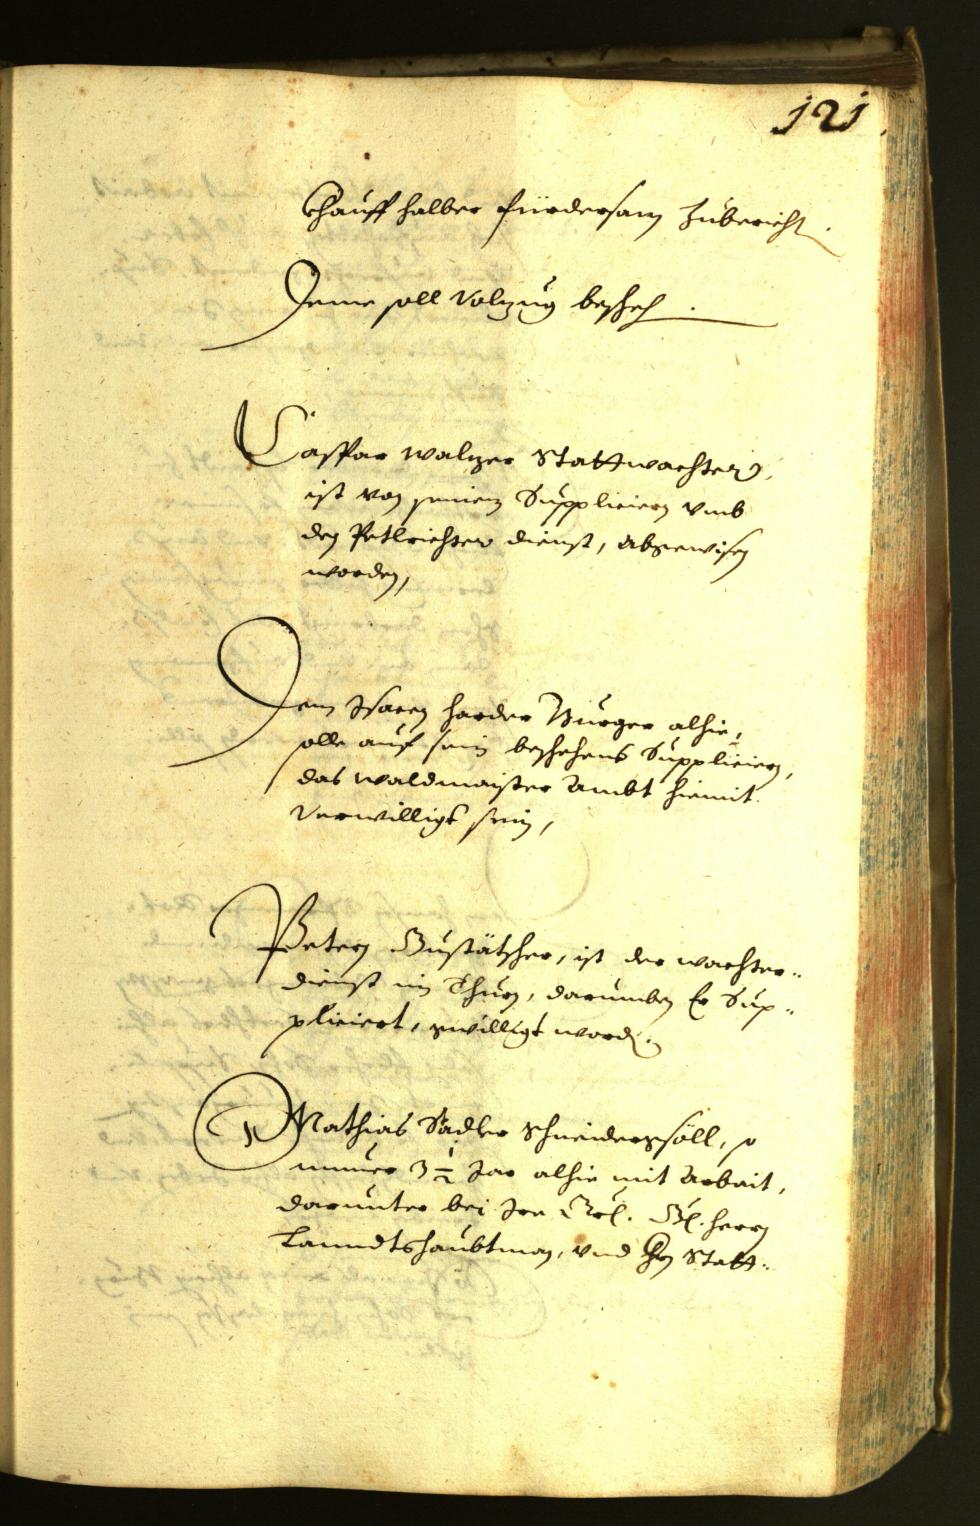 121
khauff halber fürdersam zubericht.
Deme soll volzug besheh.
Caspar walzer Stattwachter,
ist von seinem Suppliciern vmb
den Petlrichter dienst, abgewisen
worden,
Dem Isaaen harder Burger alhie,
solle auf sein beshehens Suppliciern,
das waldmaister Ambt hiemit
verwilligt sein,
Petern Gustätsher, ist der wachter-
dienst im Thurn, darumben Er Sup-
pliciert, gwilligt word.
Mathias Sadler Schneidersgsöll, so
nunner 3½ Jar alhie mit Arbait,
darunter bei Irr Gl. herrn
Lanndtshaubtman, vnd hn Statt-